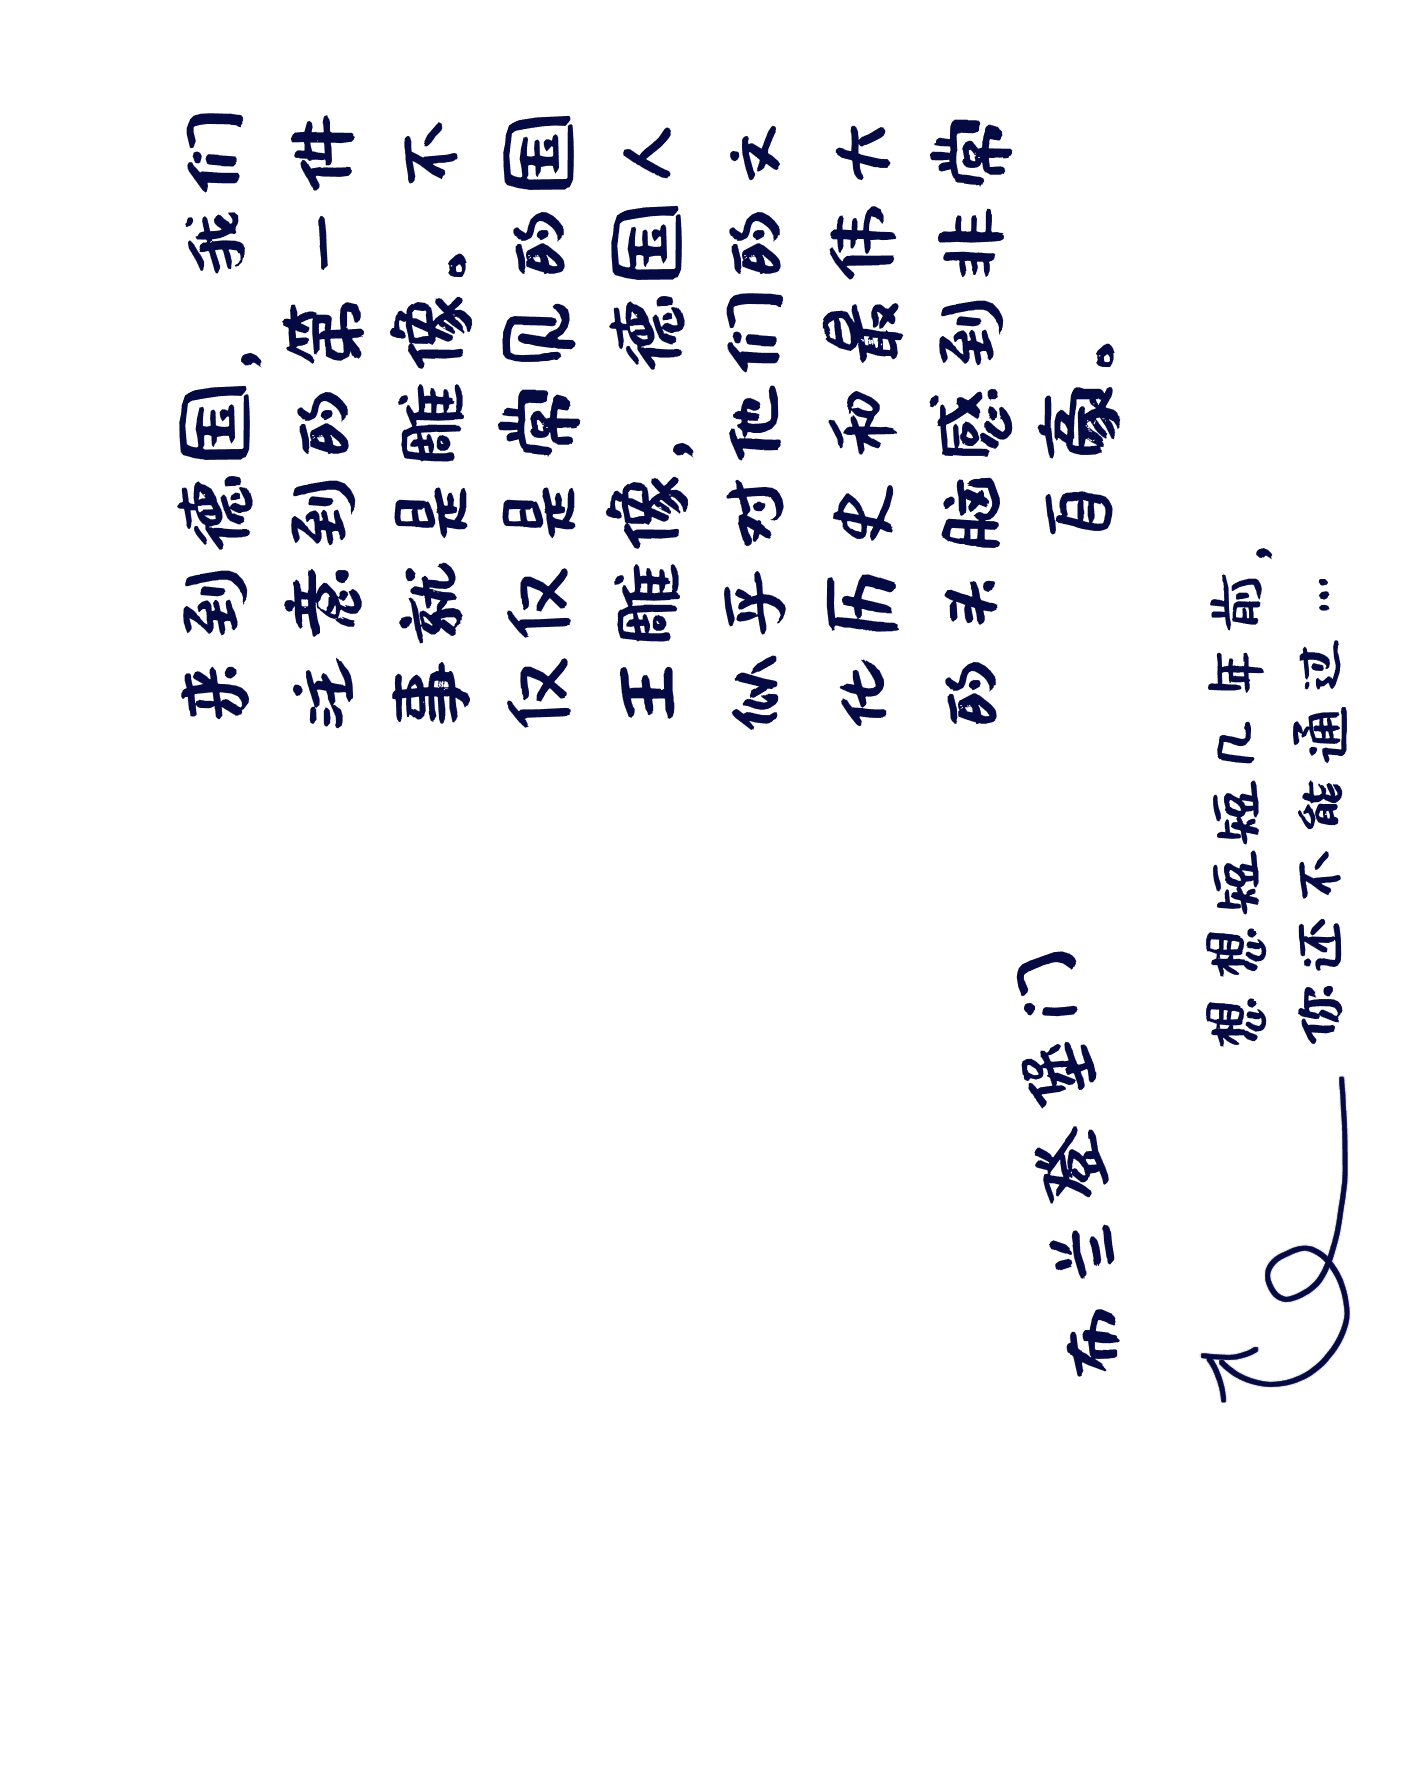 来到德国，我们
注意到的第一件
事就是雕像。不
仅仅是常见的国
王雕像，德国人
似乎对他们的文
化历史和最伟大
的头脑感到非常
自豪。
布兰登堡门
想想短短几年前，
你还不能通过...